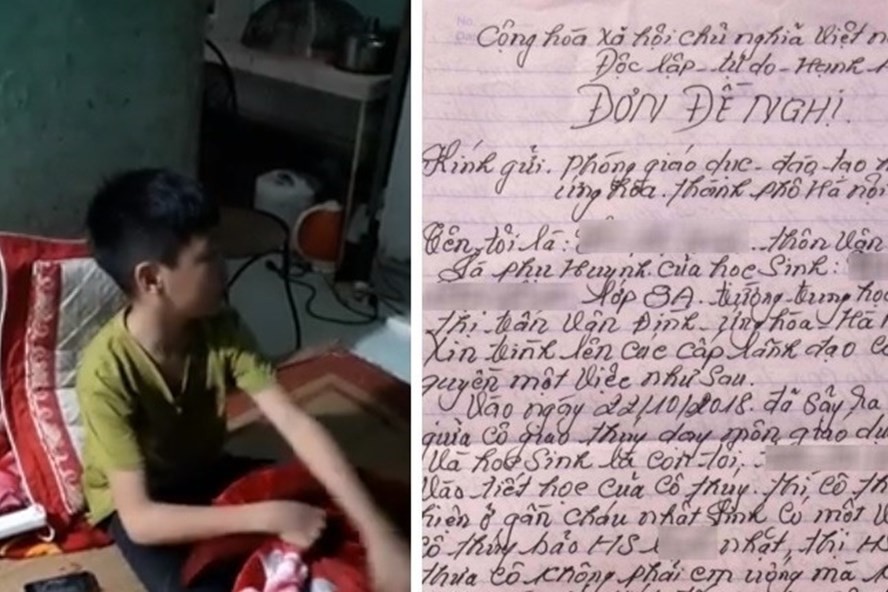 No.
Cộng hòa xã hội chủ nghĩa việt n
Độc lập - tự do - Hạnh
ĐƠN ĐỀ NGHỊ.
Kính gửi. phòng giáo dục - đào tạo
ứng hòa. thành phố Hà nội
Tên tôi là: thôn Vân
Là phụ Huynh của học Sinh:
lớp 8A. trường trung học
thị trấn Vân Đình - ứng hòa - Hà
Xin trình lên các cấp lãnh đạo
quyền một việc như sau.
Vào ngày 22/10/2018. đã Sẩy ra
giữa cô giáo thúy dạy môn giáo dụ
Và học Sinh là con tôi,
Vào tiết học của cô thúy. thì cô th
hiện ở gần cháu nhất Đình có một V
cô thúy bảo HS nhặt, thì H
thưa cô không phải em uống mà